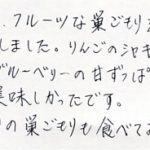 、フルーツな巣ごもり
しました。りんごのシャキ
ブルーベリーの甘ずっぱ
美味しかったです。
の巣ごもりも食べてみ